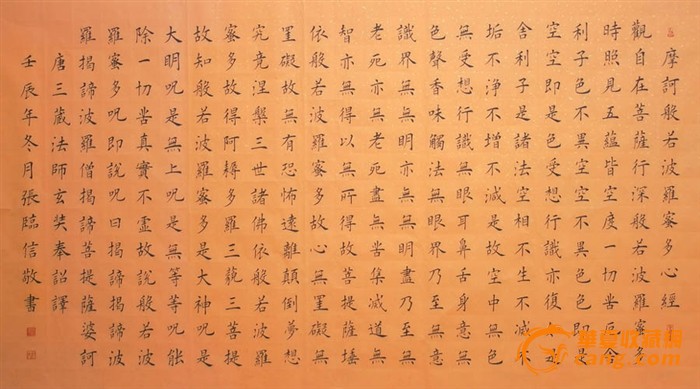 摩訶般若波羅蜜多心經
觀自在菩薩行深般若波羅蜜多
時照見五蘊皆空度一切苦厄舍
利子色不異空空不異色色即是
空空即是色受想行識亦復如是
舍利子是諸法空相不生不滅不
垢不淨不增不減是故空中無色
無受想行識無眼耳鼻舌身意無
色聲香味觸法無眼界乃至無意
識界無無明亦無無明盡乃至無
老死亦無老死盡無苦集滅道無
智亦無得以無所得故菩提薩埵
依般若波羅蜜多故心無罣礙無
罣礙故無有恐怖遠離顛倒夢想
究竟涅槃三世諸佛依般若波羅
蜜多故得阿耨多羅三藐三菩提
故知般若波羅蜜多是大神呪是
大明呪是無上呪是無等等呪能
除一切苦真實不虛故說般若波
羅蜜多呪即說呪曰揭諦揭諦波
羅揭諦波羅僧揭諦菩提薩婆訶
唐三藏法師玄奘奉詔譯
壬辰年冬月張臨信敬書
cang.com